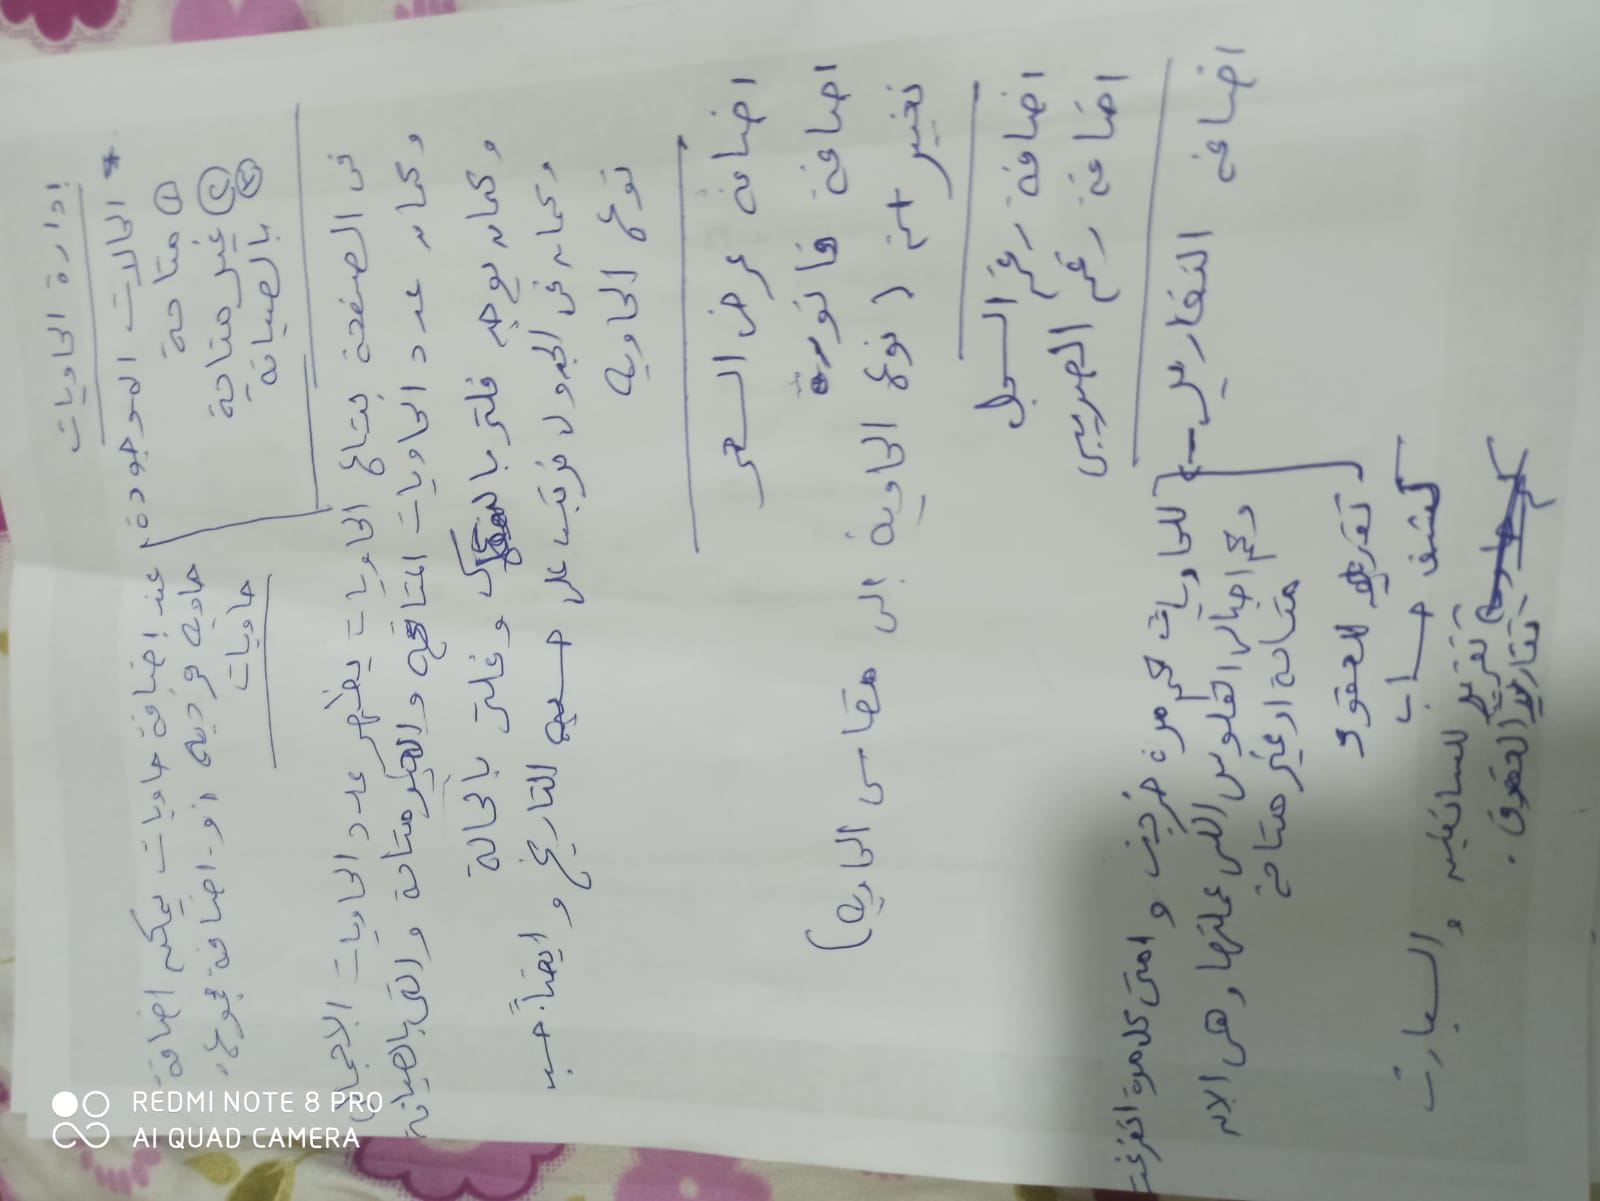 إدارة الحاويات
* الحالات الموجودة
① متاحة
② غير متاحة
③ بالصيانة
عند إضافة حاويات يمكن اضافة
حاوية فردية او اضافة مجموعة
حاويات
فى الصفحة بتاع الحاويات يظهر عدد الحاويات الاجمالى
وكمان عدد الحاويات المتاحة والغير متاحة والتى بالصيانة
وكمان يوجد فلتر وفلتر بالحالة
وكمان فى الجدول ترتيب على حسب التاريخ وايضاً حسب
نوع الحاوية
اضافة عرض السعر
اضافة فاتورة
تغيير اسم (نوع الحاوية إلى مقاس الحاوية)
اضافة رقم السجل
اضافة رقم الضريبى
اضافة التقارير -
للحاويات كم مرة خرجت وامتى كل مرة اتفرغت
وكم اجمالى الفلوس اللى عملتها وهى الان
متاحة او غير متاحة
تقرير للعقود
كشف حساب
تقرير للسائقين والسيارت
تقارير العقود .
REDMI NOTE 8 PRO
AI QUAD CAMERA